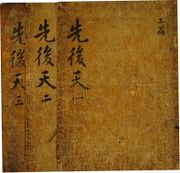 先後天一
上篇
先後天二
先後天三